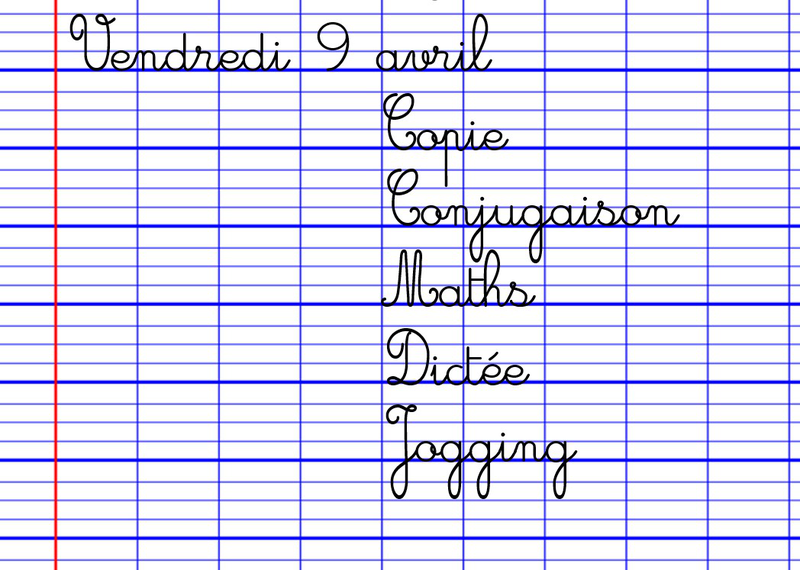 Vendredi 9 avril
Copie
Conjugaison
Maths
Dictée
Jogging